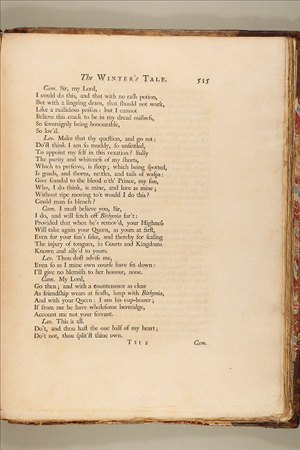 The WINTER's TALE. 515
Cam. Sir, my Lord,
I could do this, and that with no rash potion,
But with a lingring dram, that should not work,
Like a malicious poison: but I cannot
Believe this crack to be in my dread mistress,
So sovereignly being honourable,
So lov'd.
Leo. Make that thy question, and go rot:
Do'st think I am so muddy, so unsettled,
To appoint my self in this vexation? Sully
The purity and whiteness of my sheets,
Which to preserve, is sleep; which being spotted,
Is goads, thorns, nettles, and tails of wasps:
Give scandal to the blood o'th' Prince, my son,
Who, I do think, is mine, and love as mine;
Without ripe moving to't would I do this?
Could man so blench?
Cam. I must believe you, Sir,
I do, and will fetch off Bithynia for't:
Provided that when he's remov'd, your Highness
Will take again your Queen, as yours at first,
Even for your son's sake, and thereby for sealing
The injury of tongues, in Courts and Kingdoms
Known and ally'd to yours.
Leo. Thou dost advise me,
Even so as I mine own course have set down:
I'll give no blemish to her honour, none.
Cam. My Lord,
Go then; and with a countenance as clear
As friendship wears at feasts, keep with Bithynia,
And with your Queen: I am his cup-bearer;
If from me he have wholesome beveridge,
Account me not your servant.
Leo. This is all.
Do't, and thou hast the one half of my heart;
Do't not, thou split'st thine own.
Ttt 2 Cam.